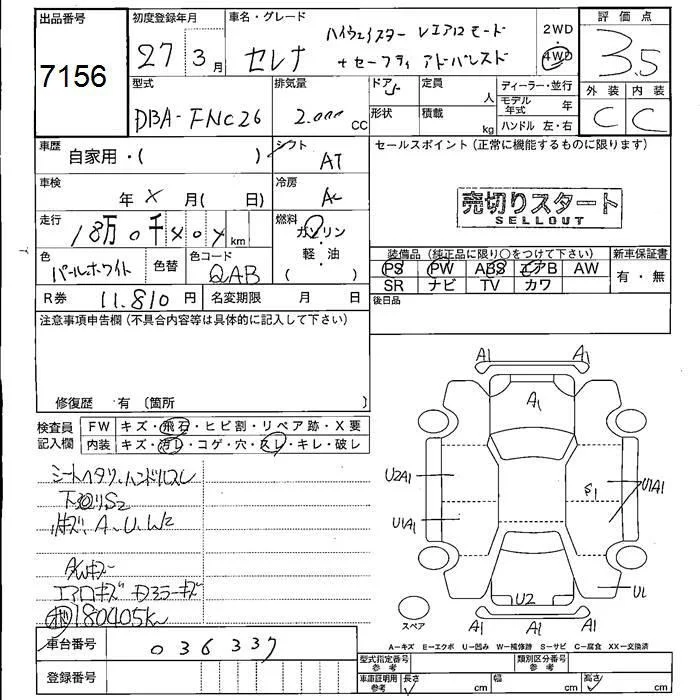 出品番号
7156
初度登録年月
27 3月
車名・グレード
セレナ
ハイウェイスター Vエアロモード
+セーフティ アドバンスド
2WD
4WD
評価点
3.5
外装 内装
C C
型式
DBA-FNC26
排気量
2.000 CC
ドア 5
形状
定員 人
積載 kg
ディーラー・並行
モデル年式 年
ハンドル 左・右
車歴 自家用・( )
シフト AT
セールスポイント(正常に機能するものに限ります)
売切りスタート
SELLOUT
車検 年 X 月( 日)
冷房 AC
走行 18万0千 km
燃料 ガソリン
軽・油
( )
色 パールホワイト
色替
色コード QAB
R券 11.810円
名変期限 月 日
装備品(純正品に限り○をつけて下さい)
PS PW ABS エアB AW
SR ナビ TV カワ
新車保証書
有・無
後日品
注意事項申告欄(不具合内容等は具体的に記入して下さい)
修復歴 有 〔箇所 〕
検査員記入欄
FW キズ・飛石・ヒビ割・リペア跡・X要
内装 キズ・汚レ・コゲ・穴・スレ・キレ・破レ
シートヘタリ、ハンドルスレ
下廻りS2
キズ、A、U、W2
AWキズ
エアロキズ ドアミラーキズ
180405k
A1 A1
A1
U2A1
S1
U1A1
U1A1
U1
U2
A1 A1 A1
スペア
車台番号 036337
登録番号
A-キズ E-エクボ U-凹み W-補修跡 S-サビ C-腐食 XX-交換済
型式指定番号 参考
類別区分番号 参考
車庫証明用 参考
長さ cm
幅 cm
高さ cm